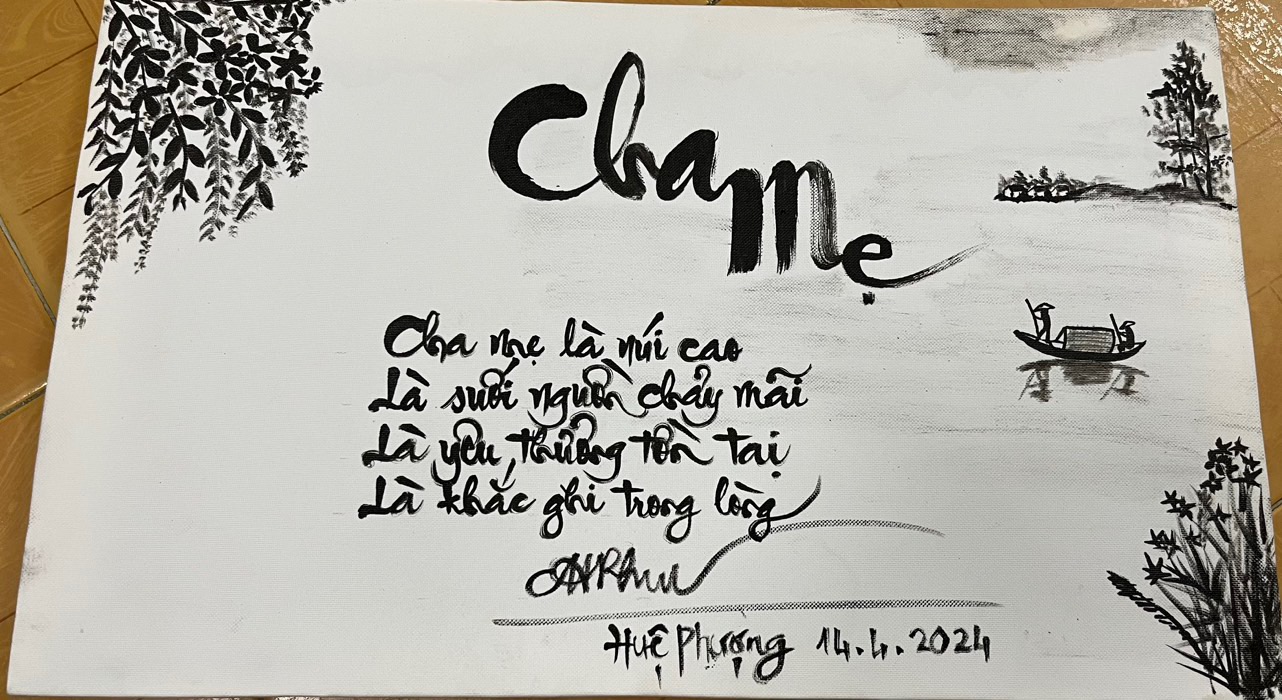 Cha
Mẹ
Cha mẹ là núi cao
Là suối nguồn chảy mãi
Là yêu thương tồn tại
Là khắc ghi trong lòng
Huệ Phượng 14.4.2024